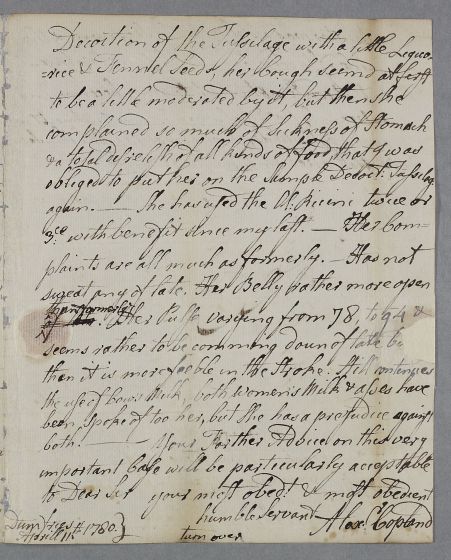 Decoction of the Tusilage with a little Liquo-
-rice & Fennel Seeds, her Cough seemd at first
to be a little moderated by it, but then she
complained so much of Sickness of Stomach
& a total disrelish of all kinds of food, that I was
obliged to put her on the Simple Decoct. Tussilag.
again. — She has used the Ol: Ricini twice or
3.ce with benefit since my last. — Her Com-
plaints are all much as formerly. — Has not
sweat any of late. Her Belly rather more open
than formerly
of Her Pulse varying from 78, to 94 &
seems rather to be comming doun of late but
then it is more feeble in the Stroke. Still continues
the use of Cows Milk, both Womens Milk & asses have
been Spoke of too her, but she has a prejudice against
both. — Your Farther Advice on this very
important Case will be particularly acceptable
to Dear Sir your most obegt. & most obedient
humble Servant
Alexr. Copland
Dumfries
Aprill 11th. 1780.
turn over